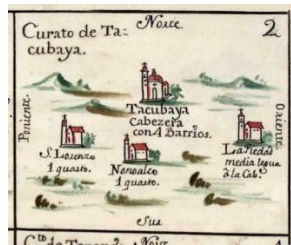 Curato de Ta=
cubaya.
Norte
2
Poniente.
Oriente.
Tacubaya
Cabezera
con 4 Barrios.
S. Lorenzo
1 quarto.
Nonoalco
1 quarto.
La Piedad
media legua
à la Cab.ª
Sur
Norte